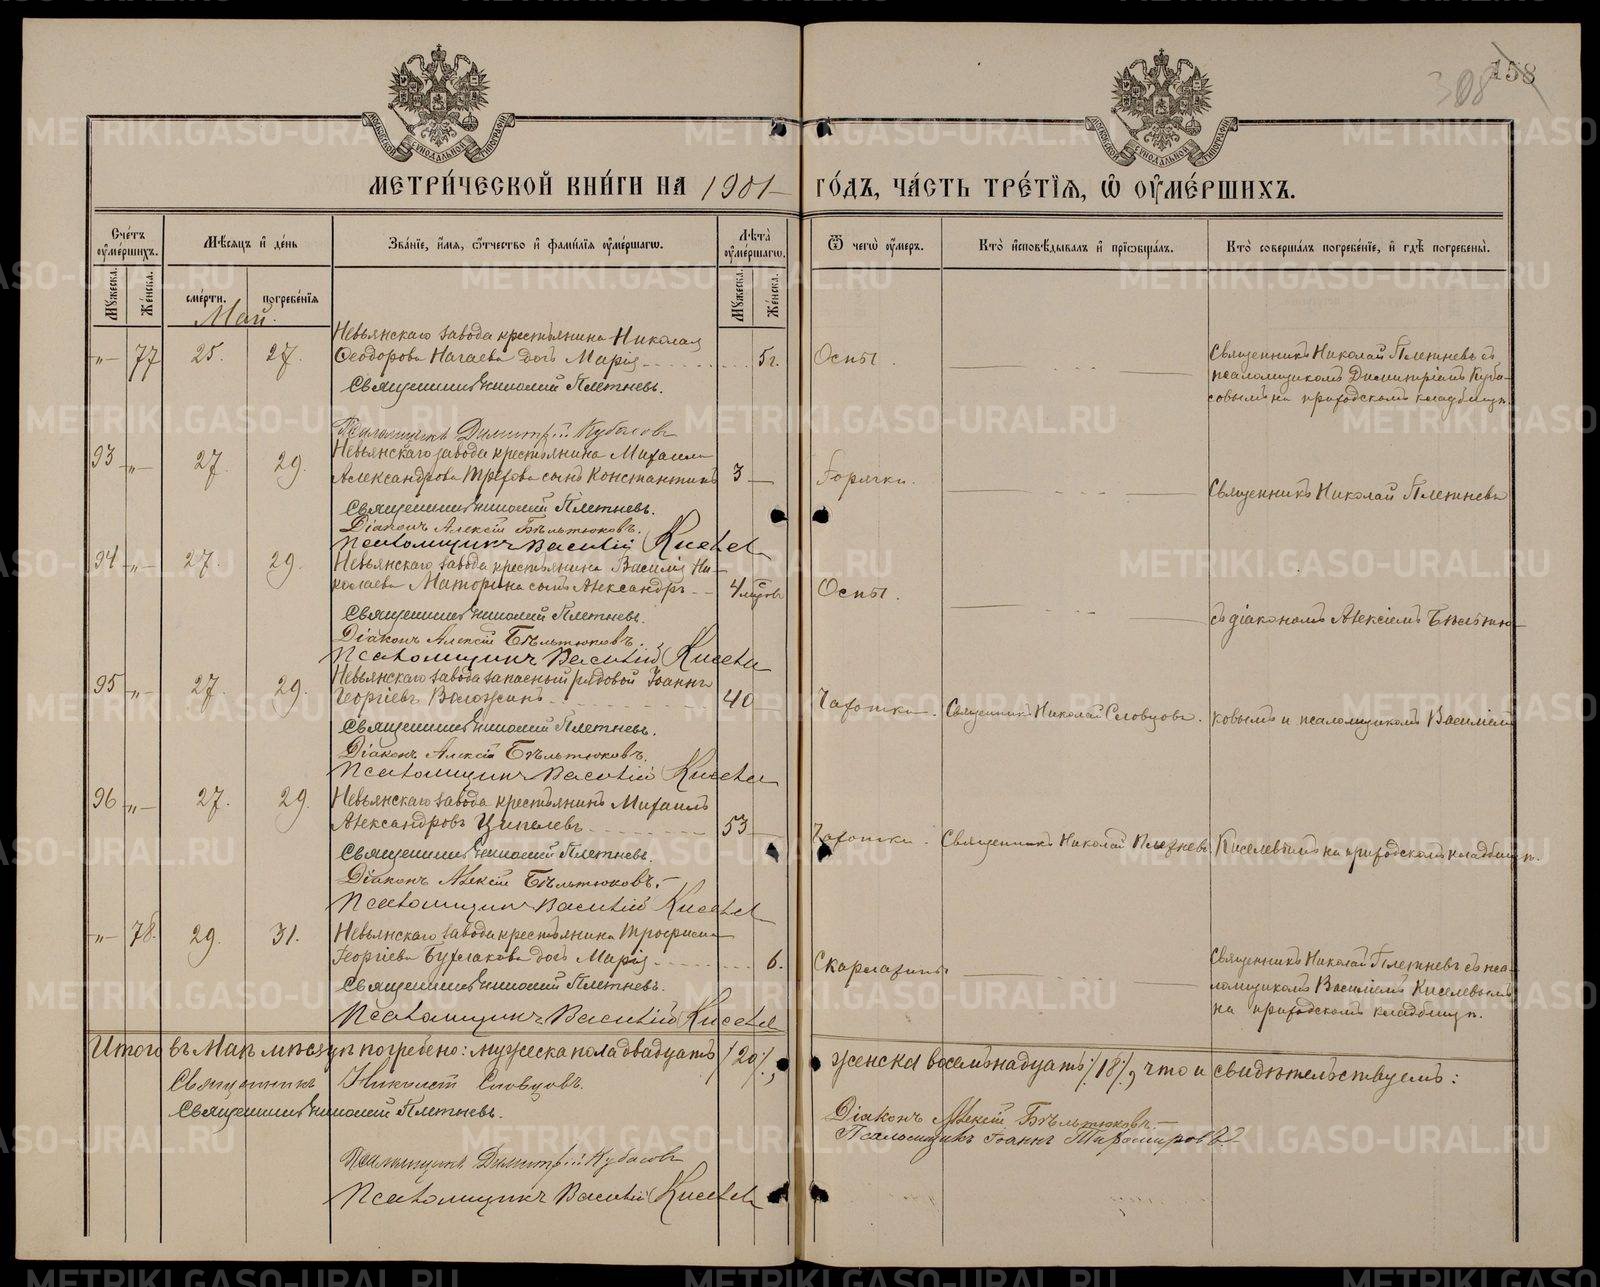 308 158
МОСКОВСКОЙ СѴНОДАЛЬНОЙ ТИПОГРАФІИ
МОСКОВСКОЙ СѴНОДАЛЬНОЙ ТИПОГРАФІИ
МЕТРИ́ЧЕСКОЙ КНИ́ГИ НА 1901 ГО́ДЪ, ЧА́СТЬ ТРЕ́ТІЯ, Ѡ ОУМЕ́РШИХЪ.
Сче́тъ оумершихъ.
Мѣсяцъ и де́нь
Зва́ніе, и́мя, о́тчество и фами́лія оуме́ршагѡ.
Лѣта̀ оуме́ршагѡ.
Ѿ чегѡ̀ оу́меръ.
Кто̀ исповѣ́дывалъ и прїѡбща́лъ.
Кто̀ соверша́лъ погребе́ніе, и гдѣ̀ погребены̀.
Мꙋжеска. Же́нска.
сме́рти. погребе́нія
Мꙋжеска. Же́нска.
Май.
Невьянскаго завода крестьянина Николая
-„- 77 25. 27. Ѳеодорова Нагаева дочь Марія 5 г. Оспы.
Священникъ Николай Плетневъ съ
псаломщикомъ Димитріемъ Куба-
совымъ на приходскомъ кладбищѣ.
Священникъ Николай Плетневъ.
Псаломщикъ Димитрій Кубасовъ
93 -„- 27. 29. Невьянскаго завода крестьянина Михаила
Александрова Трехова сынъ Константинъ 3 — Горячки.
Священникъ Николай Плетневъ
Священникъ Николай Плетневъ.
Діаконъ Алексій Бѣльтюковъ.
Псаломщикъ Василій Киселев
94 -„- 27. 29. Невьянскаго завода крестьянина Василія Ни-
колаева Маторина сынъ Александръ 4 мѣсяцевъ Оспы.
съ діакономъ Алексіемъ Бѣльтю-
Священникъ Николай Плетневъ.
Діаконъ Алексій Бѣльтюковъ.
Псаломщикъ Василій Киселев
95 -„- 27. 29. Невьянскаго завода запасный рядовой Іоаннъ
Георгіевъ Воложинъ 40 — Чахотки. Священникъ Николай Словцовъ.
ковымъ и псаломщикомъ Василіемъ
Священникъ Николай Плетневъ.
Діаконъ Алексій Бѣльтюковъ.
Псаломщикъ Василій Киселев
96 -„- 27. 29. Невьянскаго завода крестьянинъ Михаилъ
Александровъ Ципелевъ 53 — Чахотки. Священникъ Николай Плетневъ. Киселевымъ на приходскомъ кладбищѣ.
Священникъ Николай Плетневъ.
Діаконъ Алексій Бѣльтюковъ.
Псаломщикъ Василій Киселев
-„- 78. 29. 31. Невьянскаго завода крестьянина Трофима
Георгіева Бурлакова дочь Марія 6. Скарлатины.
Священникъ Николай Плетневъ съ пса-
ломщикомъ Василіемъ Киселевымъ
на приходскомъ кладбищѣ.
Священникъ Николай Плетневъ.
Псаломщикъ Василій Киселев
Итого въ Маѣ мѣсяцѣ погребено: мужеска пола двадцать /20/, женска восемьнадцать /18/, что и свидѣтельствуемъ:
Священникъ Николай Словцовъ.
Священникъ Николай Плетневъ.
Діаконъ Алексій Бѣльтюковъ.
Псаломщикъ Іоаннъ Тихомировъ
Псаломщикъ Димитрій Кубасовъ
Псаломщикъ Василій Киселев
METRIKI.GASO-URAL.RU